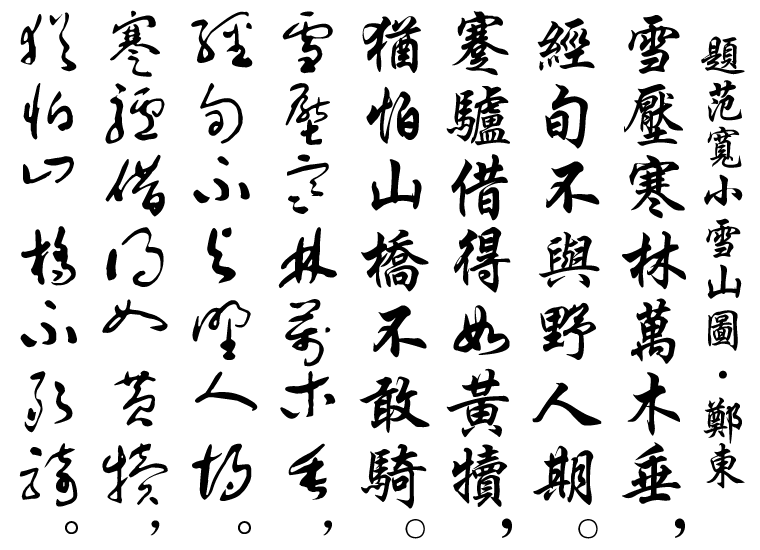 題范寬小雪山圖·鄭東
雪壓寒林萬木垂，
經旬不與野人期。
蹇驢借得如黃犢，
猶怕山橋不敢騎。
雪壓寒林萬木垂，
經旬不與野人期。
蹇驢借得如黃犢，
猶怕山橋不敢騎。